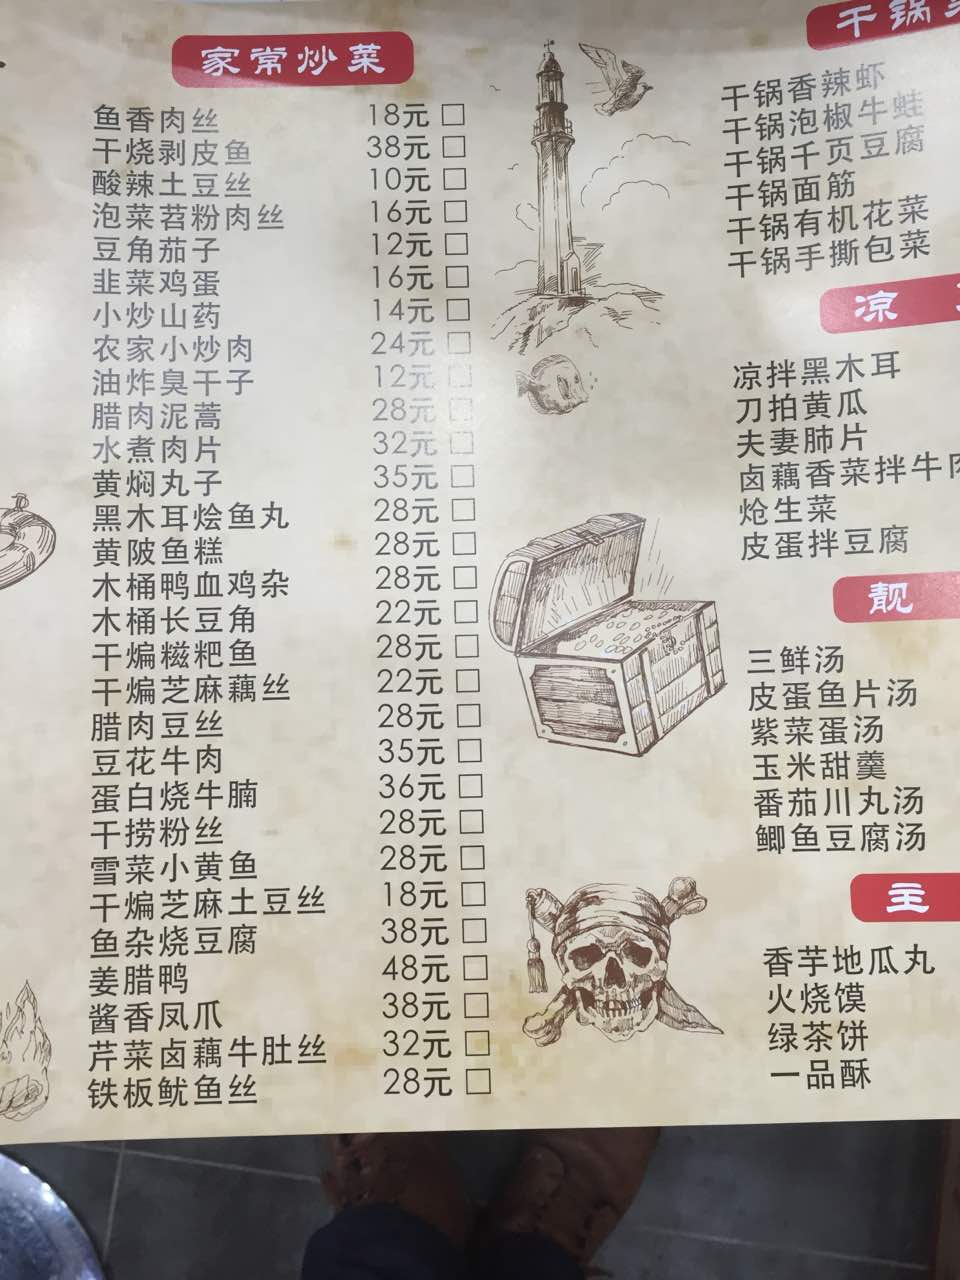 家常炒菜
鱼香肉丝 18元 □
干烧剥皮鱼 38元 □
酸辣土豆丝 10元 □
泡菜苕粉肉丝 16元 □
豆角茄子 12元 □
韭菜鸡蛋 16元 □
小炒山药 14元 □
农家小炒肉 24元 □
油炸臭干子 12元 □
腊肉泥蒿 28元 □
水煮肉片 32元 □
黄焖丸子 35元 □
黑木耳烩鱼丸 28元 □
黄陂鱼糕 28元 □
木桶鸭血鸡杂 28元 □
木桶长豆角 22元 □
干煸糍粑鱼 28元 □
干煸芝麻藕丝 22元 □
腊肉豆丝 28元 □
豆花牛肉 35元 □
蛋白烧牛腩 36元 □
干捞粉丝 28元 □
雪菜小黄鱼 28元 □
干煸芝麻土豆丝 18元 □
鱼杂烧豆腐 38元 □
姜腊鸭 48元 □
酱香凤爪 38元 □
芹菜卤藕牛肚丝 32元 □
铁板鱿鱼丝 28元 □
干锅
干锅香辣虾
干锅泡椒牛蛙
干锅千页豆腐
干锅面筋
干锅有机花菜
干锅手撕包菜
凉
凉拌黑木耳
刀拍黄瓜
夫妻肺片
卤藕香菜拌牛肉
炝生菜
皮蛋拌豆腐
靓
三鲜汤
皮蛋鱼片汤
紫菜蛋汤
玉米甜羹
番茄川丸汤
鲫鱼豆腐汤
主
香芋地瓜丸
火烧馍
绿茶饼
一品酥